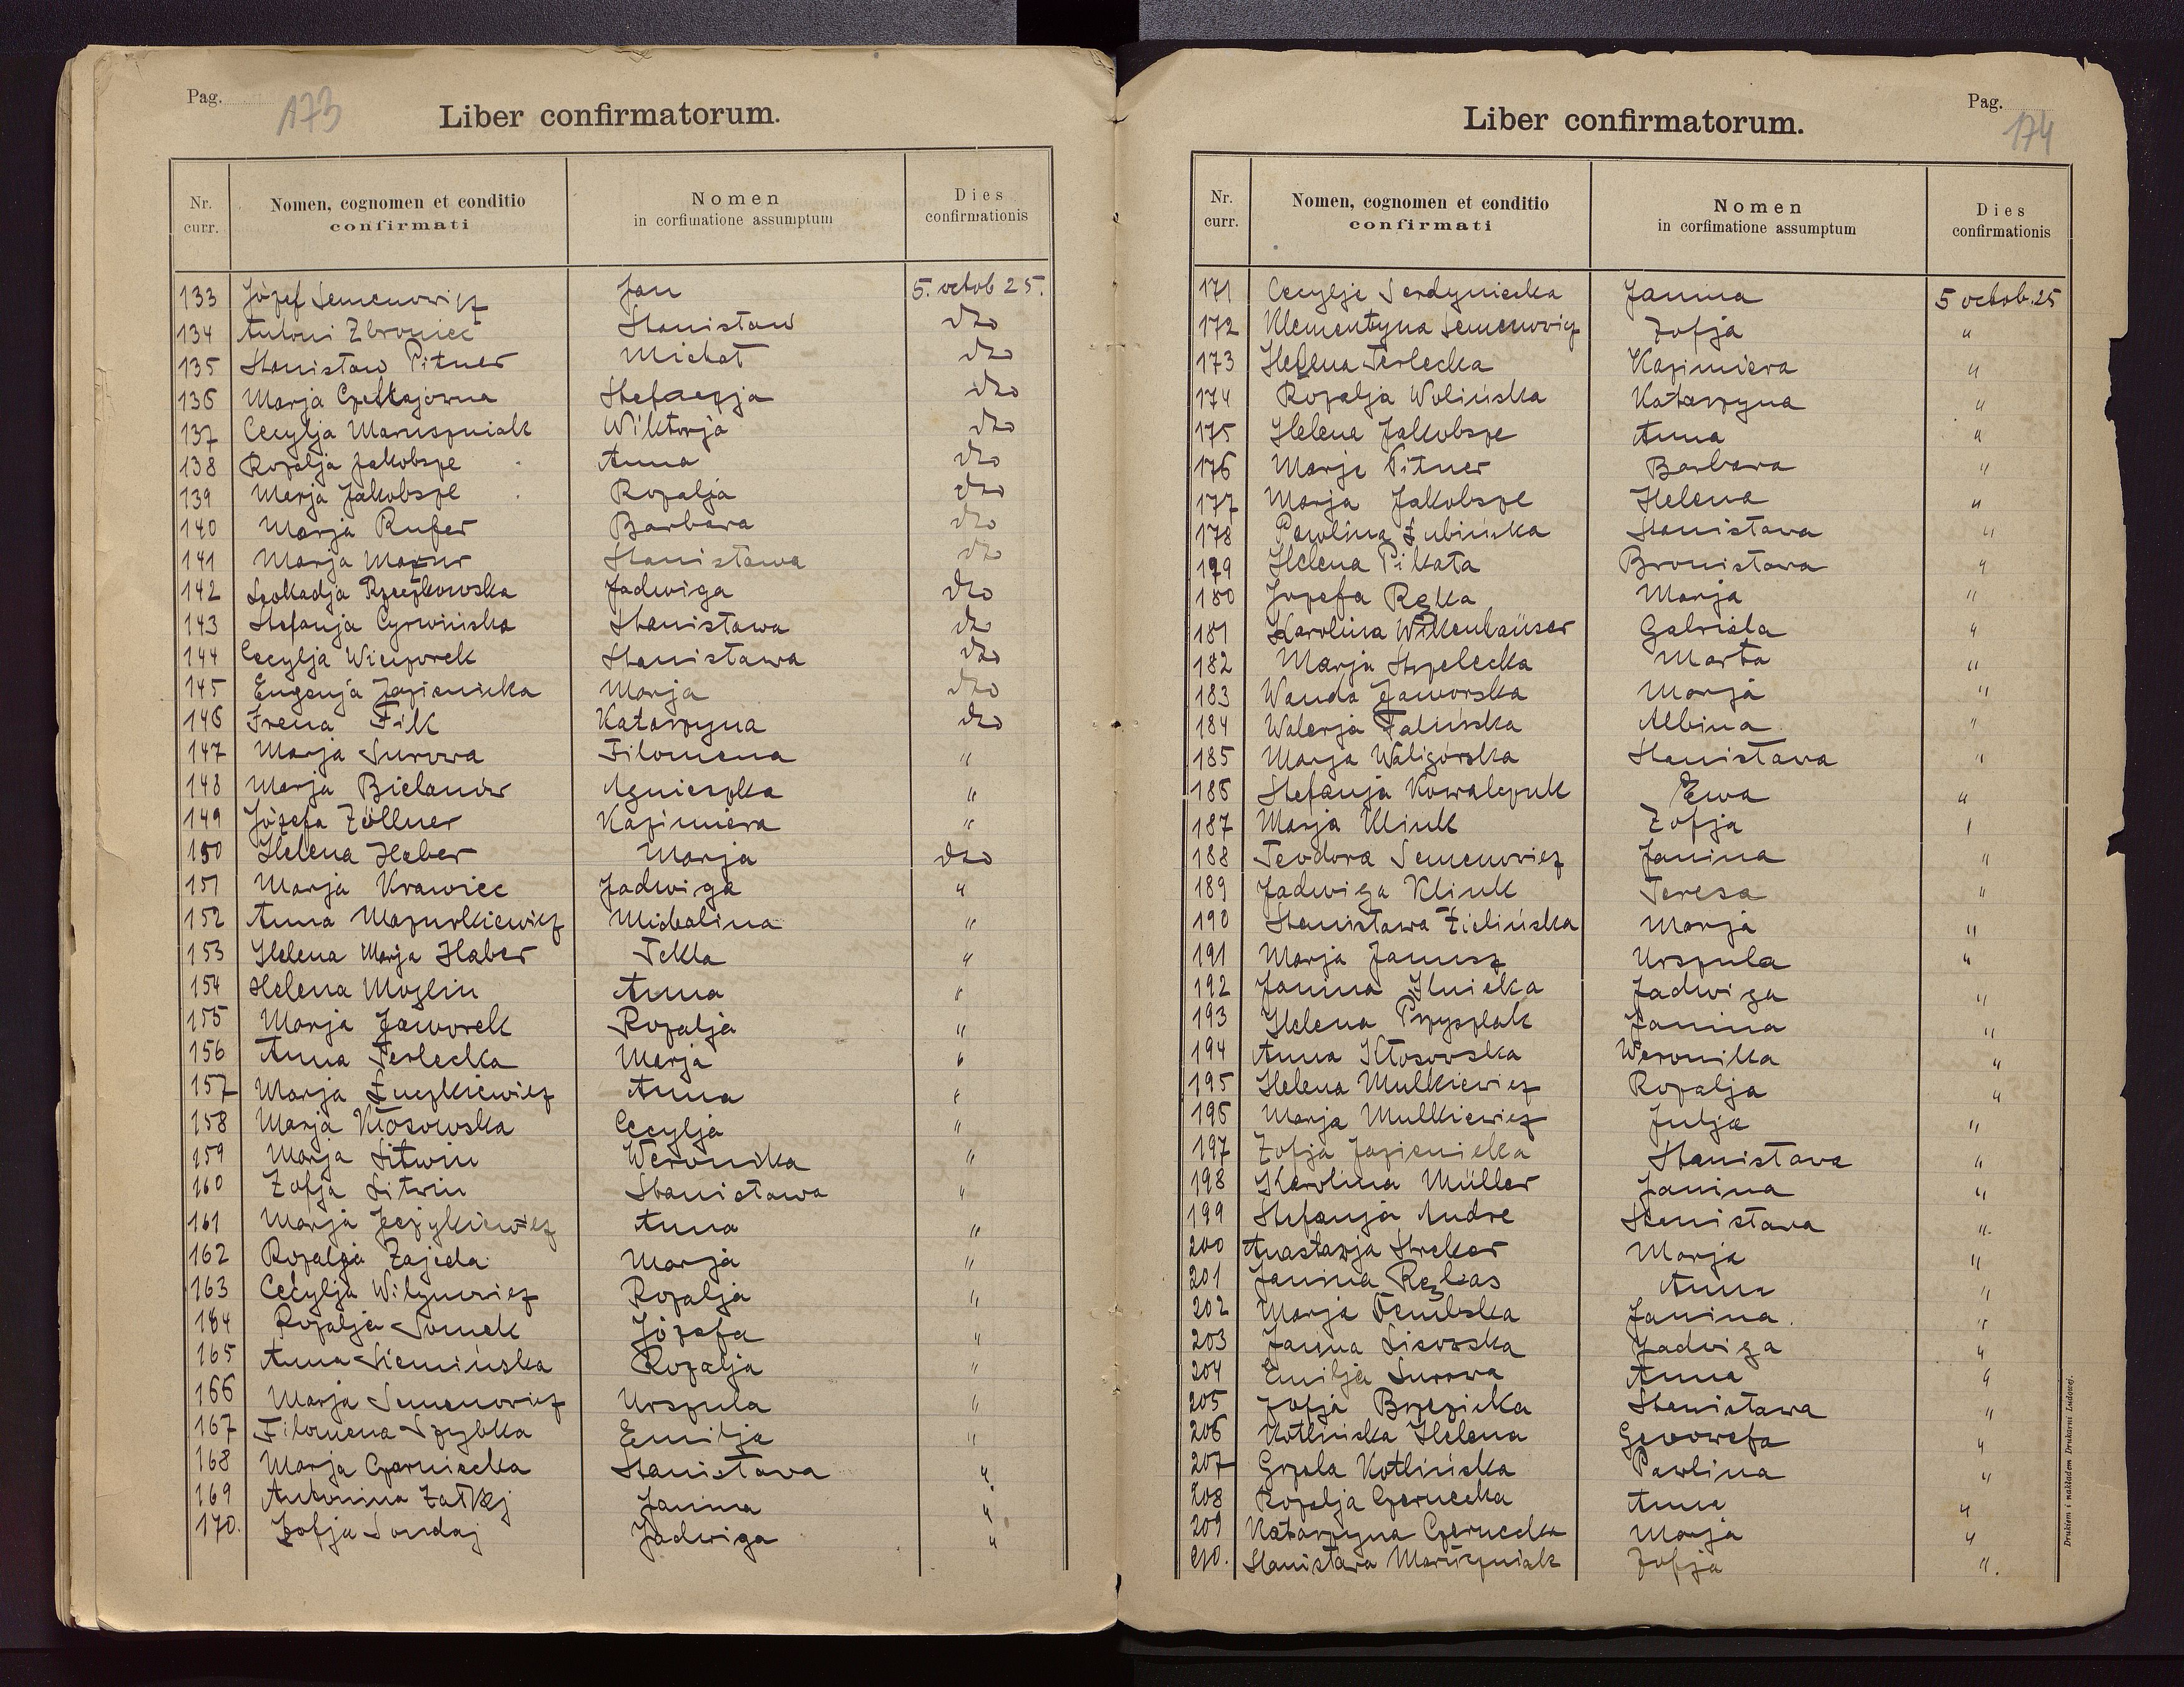 Pag. 173
Liber confirmatorum.
Nr. curr. | Nomen, cognomen et conditio confirmati | Nomen in corfimatione assumptum | Dies confirmationis
133 Józef Semenowicz Jan 5. octob 25.
134 Antoni Zbroniec Stanisław dto
135 Stanisław Pitner Michał dto
136 Marja Stefanja dto
137 Cecylja Maruszniak Wiktorja dto
138 Rozalja Jakobsze Anna dto
139 Marja Jakobsze Rozalja dto
140 Marja Rufer Barbara dto
141 Marja Mazur Stanisława dto
142 Leokadja Rzeczkowska Jadwiga dto
143 Stefanja Cyrwińska Stanisława dto
144 Cecylja Wieczorek Stanisława dto
145 Eugenja Jazienicka Marja dto
146 Irena Filk Katarzyna dto
147 Marja Surowa Filomena "
148 Marja Bielanów Agnieszka "
149 Józefa Zöllner Kazimiera "
150 Helena Haber Marja dto
151 Marja Krawiec Jadwiga "
152 Anna Mazurkiewicz Michalina "
153 Helena Marja Haber Tekla "
154 Helena Mozlin Anna "
155 Marja Jaworek Rozalja "
156 Anna Terlecka Marja "
157 Marja Łuczkiewicz Anna "
158 Marja Kłosowska Cecylja "
159 Marja Litwin Weronika "
160 Zofja Litwin Stanisława "
161 Marja Anna "
162 Rozalja Zajęda Marja "
163 Cecylja Wilynowicz Rozalja "
164 Rozalja Somek Józefa "
165 Anna Siemińska Rozalja "
166 Marja Semenowicz Urszula "
167 Filomena Szybka Emilja "
168 Marja Czarniecka Stanisława "
169 Antonina Załkęj Janina "
170. Zofja Sondaj Jadwiga "
Pag. 174
Liber confirmatorum.
Nr. curr. | Nomen, cognomen et conditio confirmati | Nomen in corfimatione assumptum | Dies confirmationis
171 Cecylja Serdyniecka Janina 5 octob. 25
172 Klementyna Semenowicz Zofja "
173 Helena Terlecka Kazimiera "
174 Rozalja Wolińska Katarzyna "
175 Helena Jakobsze Anna "
176 Marja Pitner Barbara "
177 Marja Jakobsze Helena "
178 Pawlina Łubińska Stanisława "
179 Helena Pikata Bronisława "
180 Józefa Ręka Marja "
181 Karolina Wikenhäuser Gabriela "
182 Marja Strzelecka Marta "
183 Wanda Jaworska Marja "
184 Walerja Falińska Albina "
185 Marja Waligórska Stanisława "
186 Stefanja Kowalczuk Ewa "
187 Marja Klink Zofja "
188 Teodora Semenowicz Janina "
189 Jadwiga Klink Teresa "
190 Stanisława Zielińska Marja "
191 Marja Janusz Urszula "
192 Janina Ilnicka Jadwiga "
193 Helena Przyszlak Janina "
194 Anna Kłosowska Weronika "
195 Helena Mulkiewicz Rozalja "
196 Marja Mulkiewicz Julja "
197 Zofja Jazienicka Stanisława "
198 Karolina Müller Janina "
199 Stefanja Andre Stanisława "
200 Anastazja Streker Marja "
201 Janina Rękas Anna "
202 Marja Dembska Janina. "
203 Janina Lisowska Jadwiga "
204 Emilja Surowa Anna "
205 Zofja Brzezicka Stanisława "
206 Kotlińska Helena Genowefa "
207 Kotlińska Pawlina "
208 Rozalja Czernecka Anna "
209 Katarzyna Czernecka Marja "
210. Stanisława Maruszniak Zofja "
Drukiem i nakładem Drukarni Ludowej.